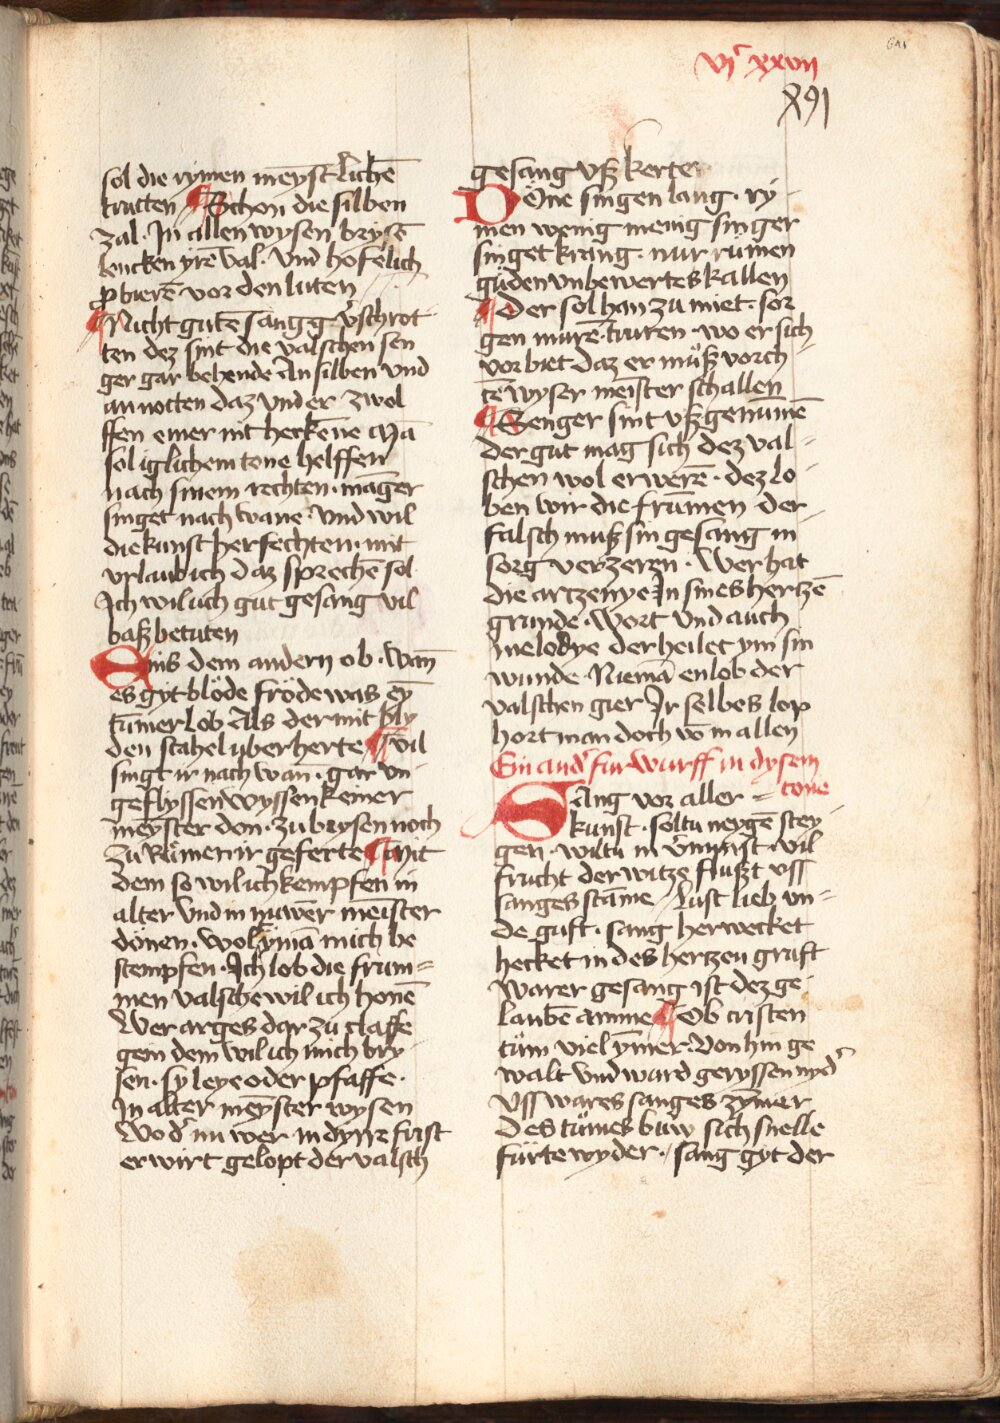 641
vjͨ xxvii
891
sol die rymen meystˀlichē
tratten Schon die silben
zal · In allen wysen brysē
bencken yrē val · Vnd hofelich
ꝓbierē · vor den luten
Nicht gutē sang gˀ vˀschrot
ten dez sint die valschen sen
ger gar behende An silben vnd
an notten daz vnder zwol
ffen einer nit
sol iglichem tone helffen
nach sinem rechten · māger
singet nach wane · Vnd wil
die kunst herfechten · mit
vrlaub ich daz sprechē sol
Ich wil uch gut gesang vil
baß betuten
Eins dem andern ob · wan̄
es gyt blöde fröde was ey̅
tum̄er lob Als der mit bly
den stahel vberherte vil
singt ir nach wan̄ · gar vn
geflyssen wyssen keiner
meyster don · zu brysen noch
zu Rümen ir geferte Mit
dem so wil ich kempfen in
alter vnd in nuwer meister
dönen · wol ymā mich be
stempfen · Ich lob die frum=
men valsche wil ich honē
Wer arges dar zu claffe
gein dem wil ich mich bry
sen · sy leye oder pfaffe ·
In alter meyster wysen
Wo dˀ nu wer in dyrre frist
er wirt gelopt der valsch
gesang vß kerter
Döne singen lang · ry
men wenig menig singer
singet krang · nur rumen
güden vnbewertes kallen
Der sol han zu miet · sor
gen murē · truren · wo er sich
vor biet daz er muß vorch
tē wyser meister schallen
Senger sint vß genum̄e
der gut mag sich dez val-
schen wol erwerē · dez lo
ben wir die frum̄en der-
falsch muß sin gesang in
sorg verzeren · Wer hat
die artzenye In sines hertzē
grunde · Wort vnd auch
melodye der heilet ym sin
wunde · Niemā en lob der
valschen gier Ir selbes lop
hort man doch vō in allen
Ein andˀ fur wurff in dysem
tone
Sang vor aller =
kunst · soltu neygē stey
gen · wiltu in vˀnunst · vil
frucht der witze flußt vss
sanges stam̄e / Lust lieb vn=
de guft · sang herwecket
hecket in des hertzen gruft
Warer gesang ist dez ge
lauben amme Ob cristen
tüm viel ym̄er · Von hin ge
walt vnd ward geryssen nydˀ
Vss wares sanges zym̄er
Des tümes buw sich snelle
fürte wyder · / sang gyt der